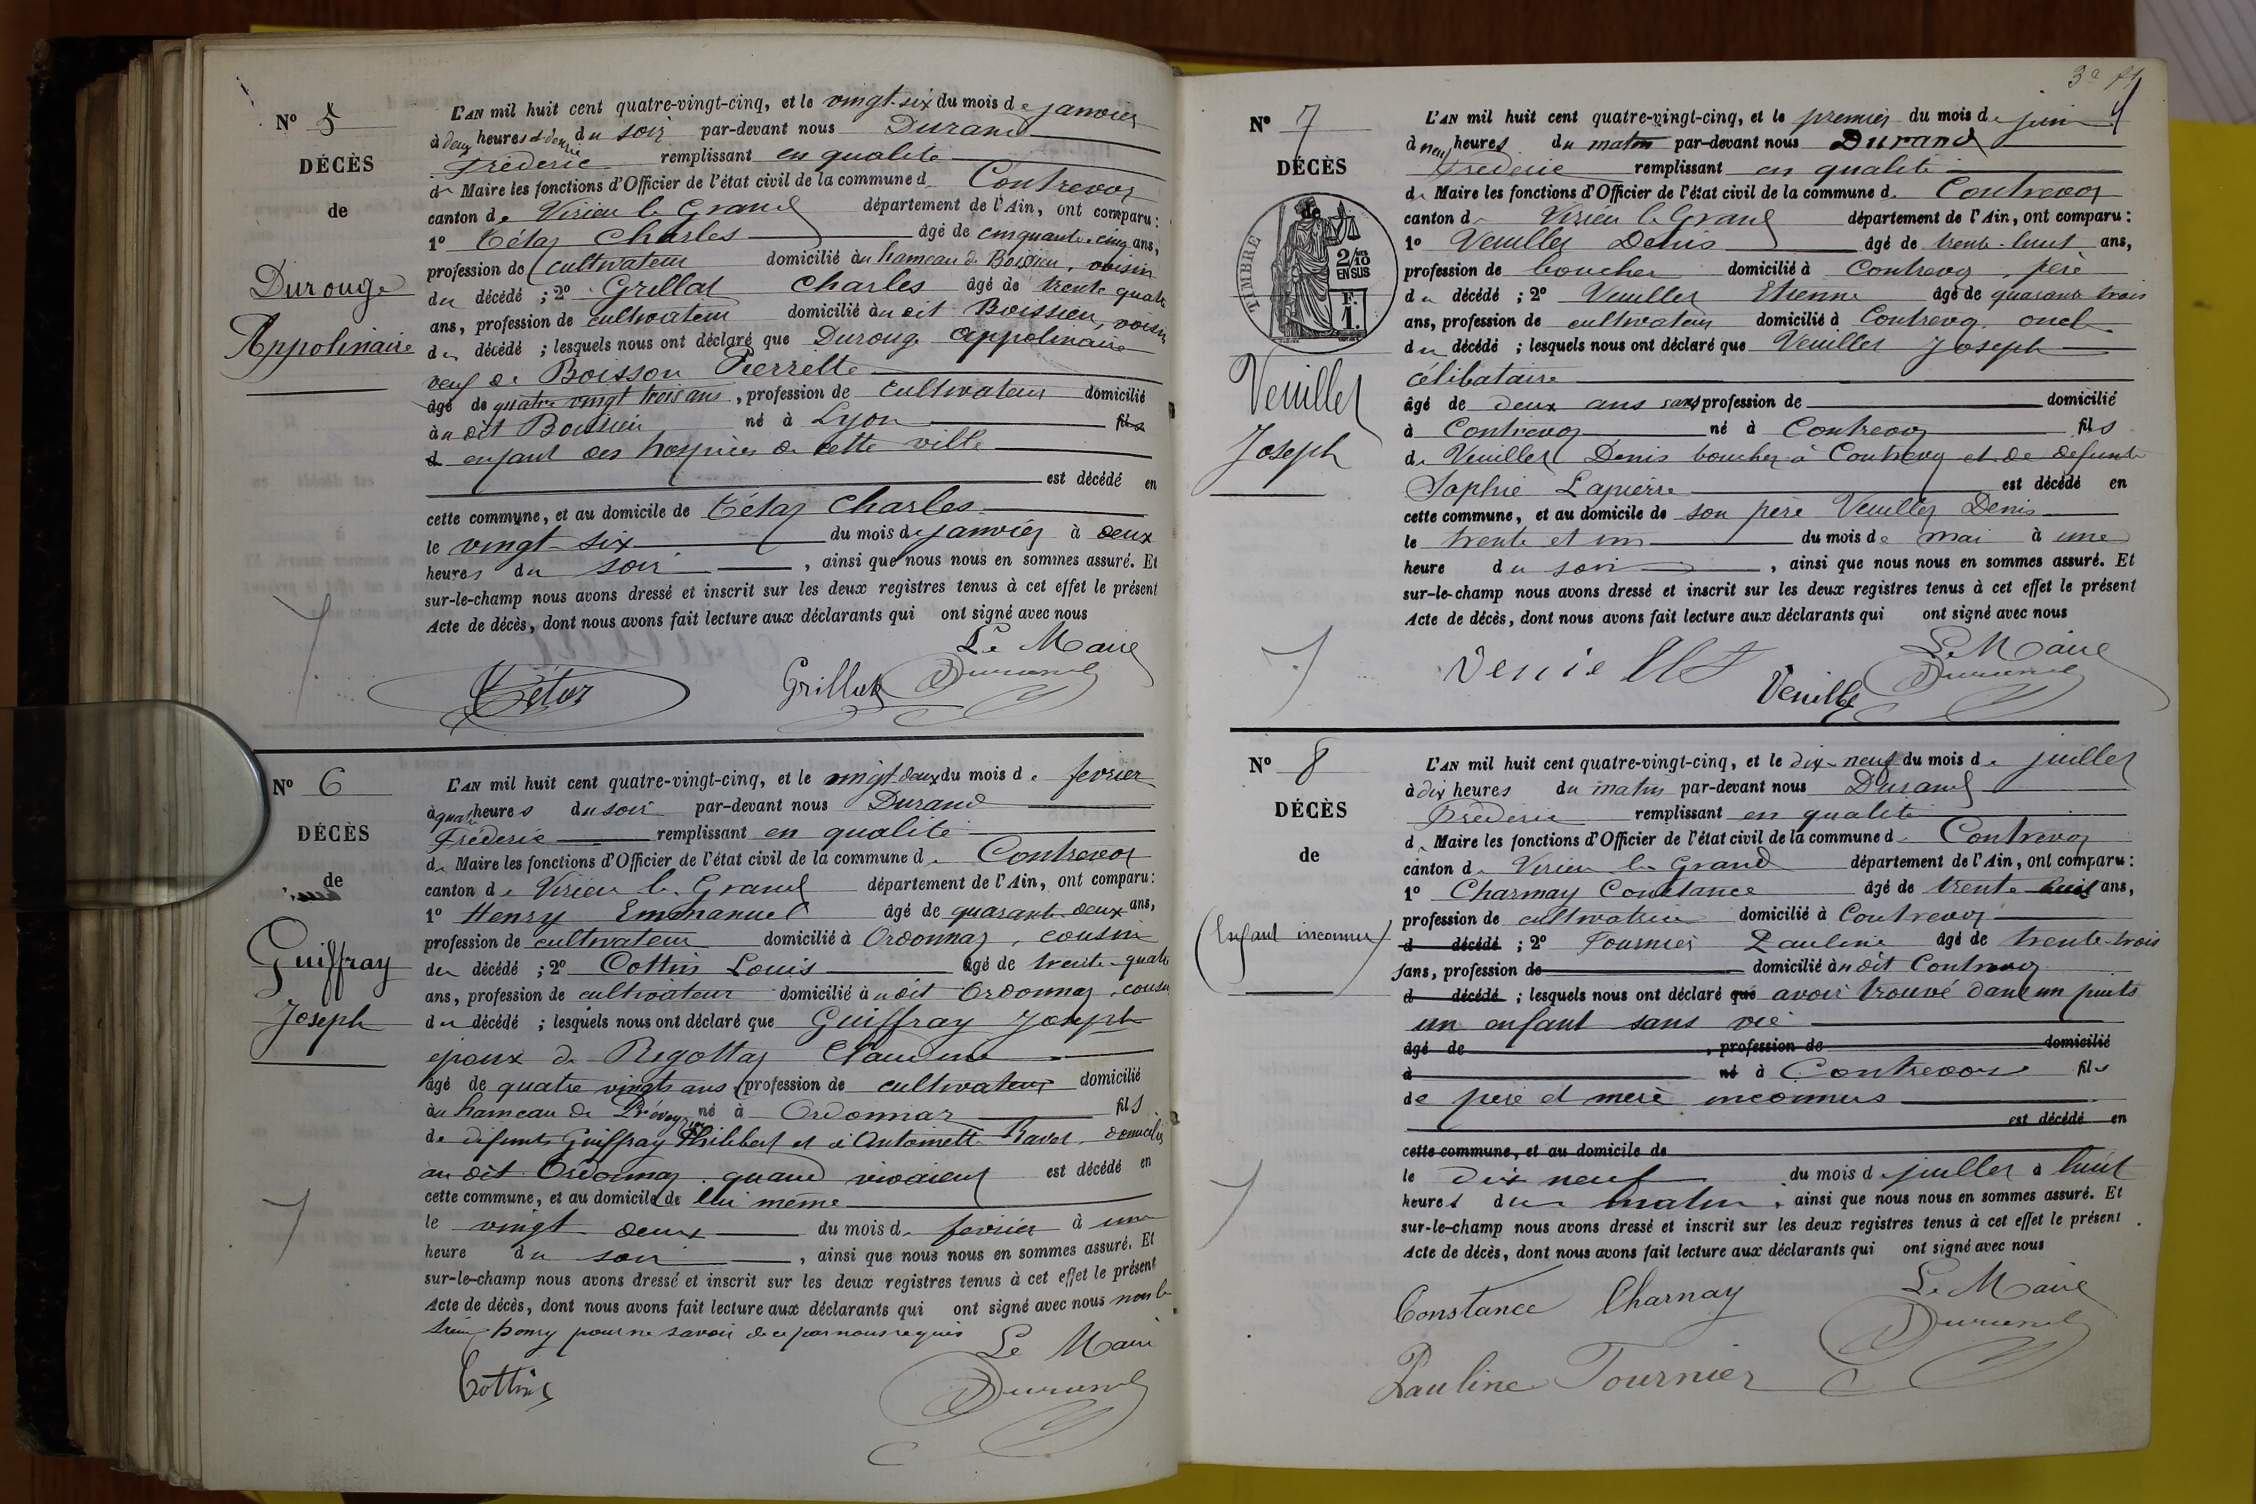 Nº 5
DÉCÈS
de
Durouge
Appolinaire
L'AN mil huit cent quatre-vingt-cinq, et le vingt-six du mois de janvier
à deux heures et demie du soir par-devant nous Durand
Fréderic remplissant en qualité
de Maire les fonctions d'Officier de l'état civil de la commune d Contrevoz
canton de Virieu le Grand département de l'Ain, ont comparu :
1º Tétaz Charles âgé de cinquante-cinq ans,
profession de cultivateur domicilié au hameau de Boissieu, voisin
du décédé ; 2º Grillat Charles âgé de trente quatre
ans, profession de cultivateur domicilié au dit Boissieu, voisin
du décédé ; lesquels nous ont déclaré que Durouge Appolinaire
veuf de Boisson Pierrette
âgé de quatre vingt trois ans, profession de cultivateur domicilié
au dit Boissieu né à Lyon fils
d enfant des hospices de cette ville
est décédé en
cette commune, et au domicile de Tétaz Charles
le vingt-six du mois de janvier à deux
heures du soir, ainsi que nous nous en sommes assuré. Et
sur-le-champ nous avons dressé et inscrit sur les deux registres tenus à cet effet le présent
Acte de décès, dont nous avons fait lecture aux déclarants qui ont signé avec nous
Le Maire
Tétaz Grillat Durand
Nº 6
DÉCÈS
de
Guiffray
Joseph
L'AN mil huit cent quatre-vingt-cinq, et le vingt-deux du mois de fevrier
à quatre heures du soir par-devant nous Durand
Fréderic remplissant en qualité
de Maire les fonctions d'Officier de l'état civil de la commune de Contrevoz
canton de Virieu le Grand département de l'Ain, ont comparu :
1º Henry Emmanuel âgé de quarante-deux ans,
profession de cultivateur domicilié à Ordonnaz, cousin
du décédé ; 2º Cottin Louis âgé de trente-quatre
ans, profession de cultivateur domicilié au dit Ordonnaz, cousin
du décédé ; lesquels nous ont déclaré que Guiffray Joseph
epoux de Rigottaz Claudine
âgé de quatre vingts ans, profession de cultivateur domicilié
au hameau de né à Ordonnaz fils
de défunts Guiffray Philibert et d'Antoinette Ravet domiciliés
au dit Ordonnaz quand vivaient est décédé en
cette commune, et au domicile de lui même
le vingt deux du mois de fevrier à une
heure du soir, ainsi que nous nous en sommes assuré. Et
sur-le-champ nous avons dressé et inscrit sur les deux registres tenus à cet effet le présent
Acte de décès, dont nous avons fait lecture aux déclarants qui ont signé avec nous non le
sieur henry pour ne savoir de ce par nous requis
Le Maire
Cottin Durand
3e
Nº 7
DÉCÈS
de
TIMBRE
2/10
EN SUS
F.
1.
Veuillet
Joseph
L'AN mil huit cent quatre-vingt-cinq, et le premier du mois de juin
à neuf heures du matin par-devant nous Durand
Fréderic remplissant en qualité
de Maire les fonctions d'Officier de l'état civil de la commune de Contrevoz
canton de Virieu le Grand département de l'Ain, ont comparu :
1º Veuillet Denis âgé de trente-huit ans,
profession de boucher domicilié à Contrevoz, père
du décédé ; 2º Veuillet Etienne âgé de quarante trois
ans, profession de cultivateur domicilié à Contrevoz, oncle
du décédé ; lesquels nous ont déclaré que Veuillet Joseph
célibataire
âgé de deux ans sans profession de domicilié
à Contrevoz né à Contrevoz fils
de Veuillet Denis boucher à Contrevoz et de defunte
Sophie Lapierre est décédé en
cette commune, et au domicile de son père Veuillet Denis
le trente et un du mois de mai à une
heure du soir, ainsi que nous nous en sommes assuré. Et
sur-le-champ nous avons dressé et inscrit sur les deux registres tenus à cet effet le présent
Acte de décès, dont nous avons fait lecture aux déclarants qui ont signé avec nous
Le Maire
Veuillet Durand
Nº 8
DÉCÈS
de
(Enfant inconnu)
L'AN mil huit cent quatre-vingt-cinq, et le dix-neuf du mois de juillet
à dix heures du matin par-devant nous Durand
Fréderic remplissant en qualité
de Maire les fonctions d'Officier de l'état civil de la commune de Contrevoz
canton de Virieu le Grand département de l'Ain, ont comparu :
1º Charnay Constance âgé de trente huit ans,
profession de cultivatrice domicilié à Contrevoz
d décédé ; 2º Tournier Pauline âgé de trente-trois
ans, profession de domicilié au dit Contrevoz
d décédé ; lesquels nous ont déclaré que avoir trouvé dans un puits
un enfant sans vie
âgé de , profession de domicilié
à né à Contrevoz fils
de père et mère inconnus
est décédé en
cette commune, et au domicile de
le dix neuf du mois de juillet à huit
heures du matin, ainsi que nous nous en sommes assuré. Et
sur-le-champ nous avons dressé et inscrit sur les deux registres tenus à cet effet le présent
Acte de décès, dont nous avons fait lecture aux déclarants qui ont signé avec nous
Constance Charnay Le Maire
Pauline Tournier Durand